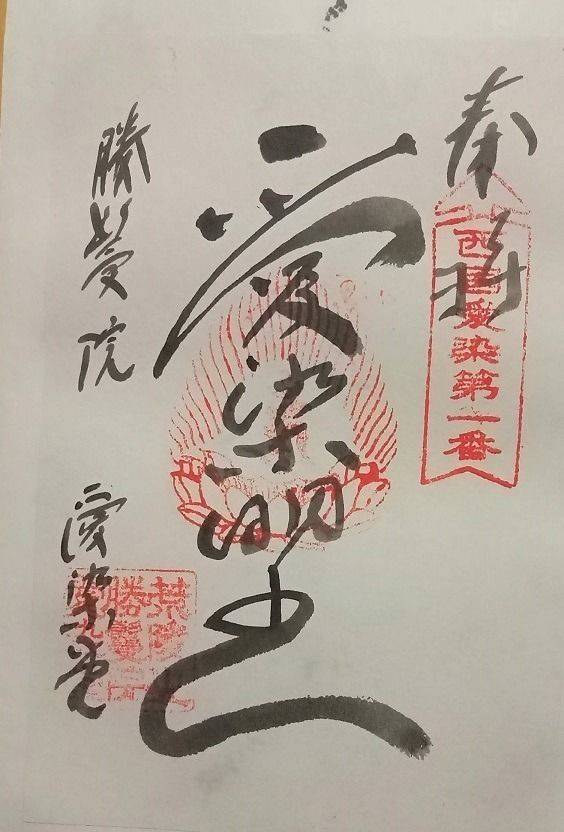 奉拝
西国愛染第一番
愛染明王
勝鬘院
愛染堂